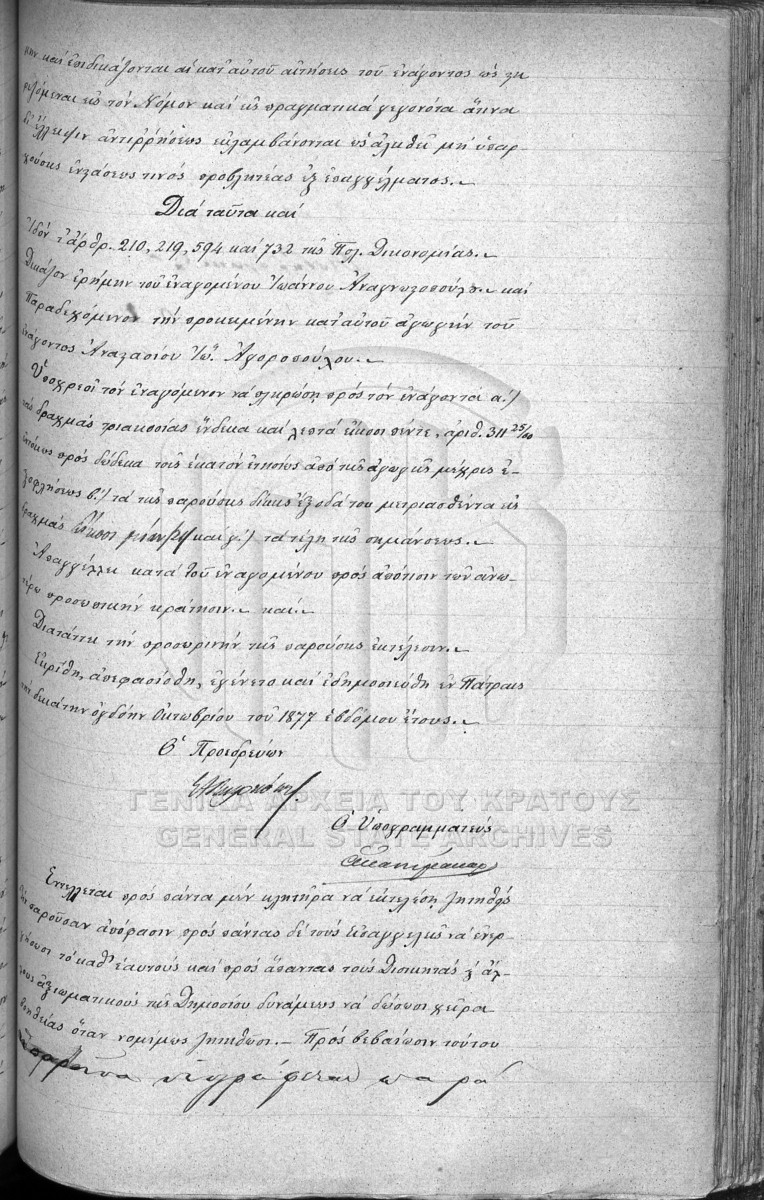 καί ἐπιδικάζονται αἱ κατ' αὐτοῦ αἰτήσεις τοῦ ἐνάγοντος ὡς στη
ριζόμεναι εἰς τόν Νόμον καί εἰς πραγματικά γεγονότα ἅτινα
δι' ἔλλειψιν ἀντιρρήσεως ἐκλαμβάνονται ὡς ἀληθῆ μή ὑπαρ
χούσης ἐνστάσεως τινός προβλητέας ἐξ ἐπαγγέλματος.
Διά ταῦτα καί
Ἰδόν τ' ἄρθρ. 210, 219, 594 καί 732 τῆς Πολ. Δικονομίας.
Δικάζον ἐρήμην τοῦ ἐναγομένου Ἰωάννου Ἀναγνωστοπούλου καί
Παραδεχόμενον τήν προκειμένην κατ' αὐτοῦ ἀγωγήν τοῦ
ἐνάγοντος Ἀναστασίου Ἰω. Ἀγοροπούλου.
Ὑποχρεοῖ τόν ἐναγόμενον νά πληρώσῃ πρός τόν ἐνάγοντα α')
τάς δραχμάς τριακοσίας ἕνδεκα καί λεπτά εἴκοσι πέντε, ἀριθ. 311 25/00
ἐντόκως πρός δώδεκα τοῖς ἑκατόν ἐτησίως ἀπό τῆς ἀγωγῆς μέχρις ἐ-
ξοφλήσεως β') τά τῆς παρούσης δίκης ἔξοδά του μετριασθέντα εἰς
δραχμάς εἴκοσι μίαν /21/ καί γ') τά τέλη τῆς σημάνσεως.
Ἀπαγγέλλει κατά τοῦ ἐναγομένου πρός ἀπότισιν τῶν ἀνω-
τέρω προσωπικήν κράτησιν. καί.
Διατάττει τήν προσωρινήν τῆς παρούσης ἐκτέλεσιν.
Ἐκρίθη, ἀπεφασίσθη, ἐγένετο καί ἐδημοσιεύθη ἐν Πάτραις
τήν δεκάτην ὀγδόην Ὀκτωβρίου τοῦ 1877 ἑβδόμου ἔτους.
Ὁ Προεδρεύων
ΓΕΝΙΚΑ ΑΡΧΕΙΑ ΤΟΥ ΚΡΑΤΟΥΣ
Ὁ Ὑπογραμματεύς
GENERAL STATE ARCHIVES
Ἐντέλλεται πρός πάντα μέν κλητῆρα νά ἐκτελέσῃ ζητηθείς
τήν παροῦσαν ἀπόφασιν πρός πάντας δέ τούς εἰσαγγελεῖς νά ἐνερ-
γήσωσι τό καθ' ἑαυτούς καί πρός ἅπαντας τούς Διοικητάς κ' ἄλ-
λους ἀξιωματικούς τῆς Δημοσίου δυνάμεως νά δώσωσι χεῖρα
βοηθείας ὅταν νομίμως ζητηθῶσι. — Πρός βεβαίωσιν τούτου
ἡ παροῦσα ὑπογράφεται παρά